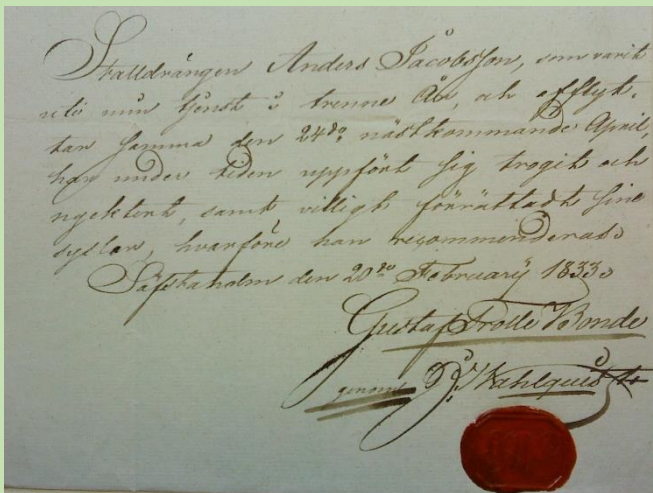 Stalldrängen Anders Jacobsson, som varit
uti min tjenst i trenne År, och afflyt-
tar samma den 24do nästkommande April,
har under tiden uppfört sig trogit och
nycktert, samt villigt förrättadt sine
syslor, hvarföre han recommenderas.
Säfstaholm den 20do February 1833.
Gustaf Trolle Bonde
genom P. Wahlquist